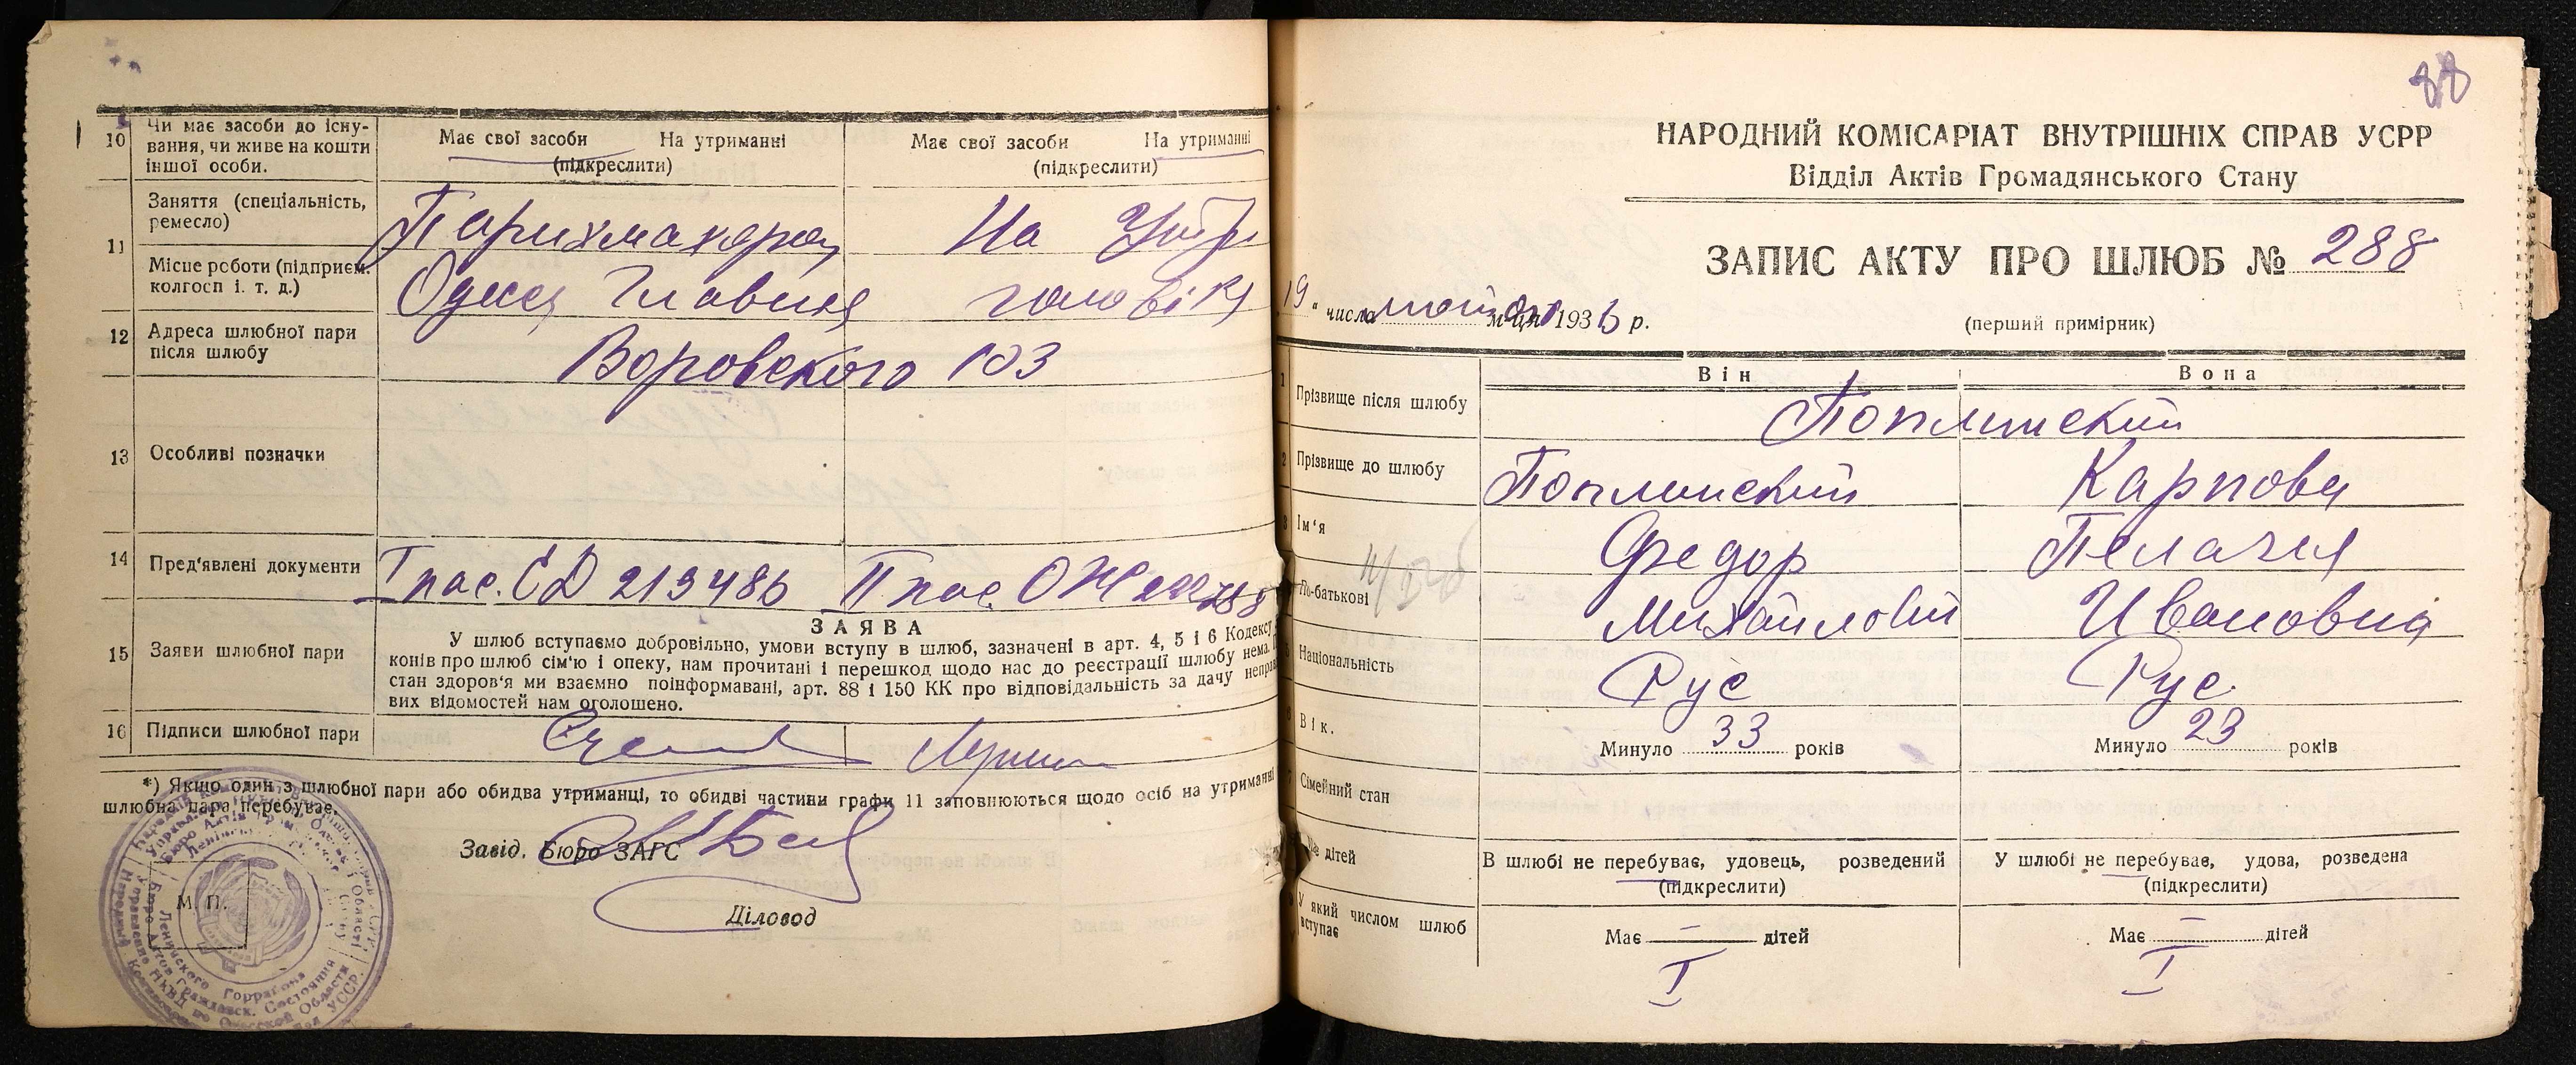 10 Чи має засоби до існу-
вання, чи живе на кошти
іншої особи.
Має свої засоби На утриманні
(підкреслити)
Має свої засоби На утриманні
(підкреслити)
11 Заняття (спеціальність,
ремесло)
Парихмахярец На Утри
Місце роботи (підприєм.
колгосп і. т. д.)
Одеса Главная головіка
12 Адреса шлюбної пари
після шлюбу
Воровского 103
13 Особливі позначки
14 Пред'явлені документи
I пас. ЄД 213486 II пас. ОЖ
15 Заяви шлюбної пари
ЗАЯВА
У шлюб вступаємо добровільно, умови вступу в шлюб, зазначені в арт. 4, 5 і 6 Кодексу
конів про шлюб сім'ю і опеку, нам прочитані і перешкод щодо нас до реєстрації шлюбу нема.
стан здоров'я ми взаємно поінформавані, арт. 88 і 150 КК про відповідальність за дачу неправ
вих відомостей нам оголошено.
16 Підписи шлюбної пари
*) Якщо один з шлюбної пари або обидва утриманці, то обидві частини графи 11 заповнюються щодо осіб на утриманні
шлюбна пара перебуває.
Завід. Бюро ЗАГС
М. П.
Діловод
88
НАРОДНИЙ КОМІСАРІАТ ВНУТРІШНІХ СПРАВ УСРР
Відділ Актів Громадянського Стану
ЗАПИС АКТУ ПРО ШЛЮБ № 288
19 " числа м-ця 1936 р.
(перший примірник)
Він Вона
1 Прізвище після шлюбу
Поплинский
2 Прізвище до шлюбу
Поплинский Карпова
3 Ім'я
Федор Пелагия
По-батькові
Михайлович Ивановна
Національність
Рус Рус
Вік.
Минуло 33 років Минуло 23 років
Сімейний стан
дітей
В шлюбі не перебуває, удовець, розведений
(підкреслити)
У шлюбі не перебуває, удова, розведена
(підкреслити)
У який числом шлюб
вступає
Має — дітей Має — дітей
I I